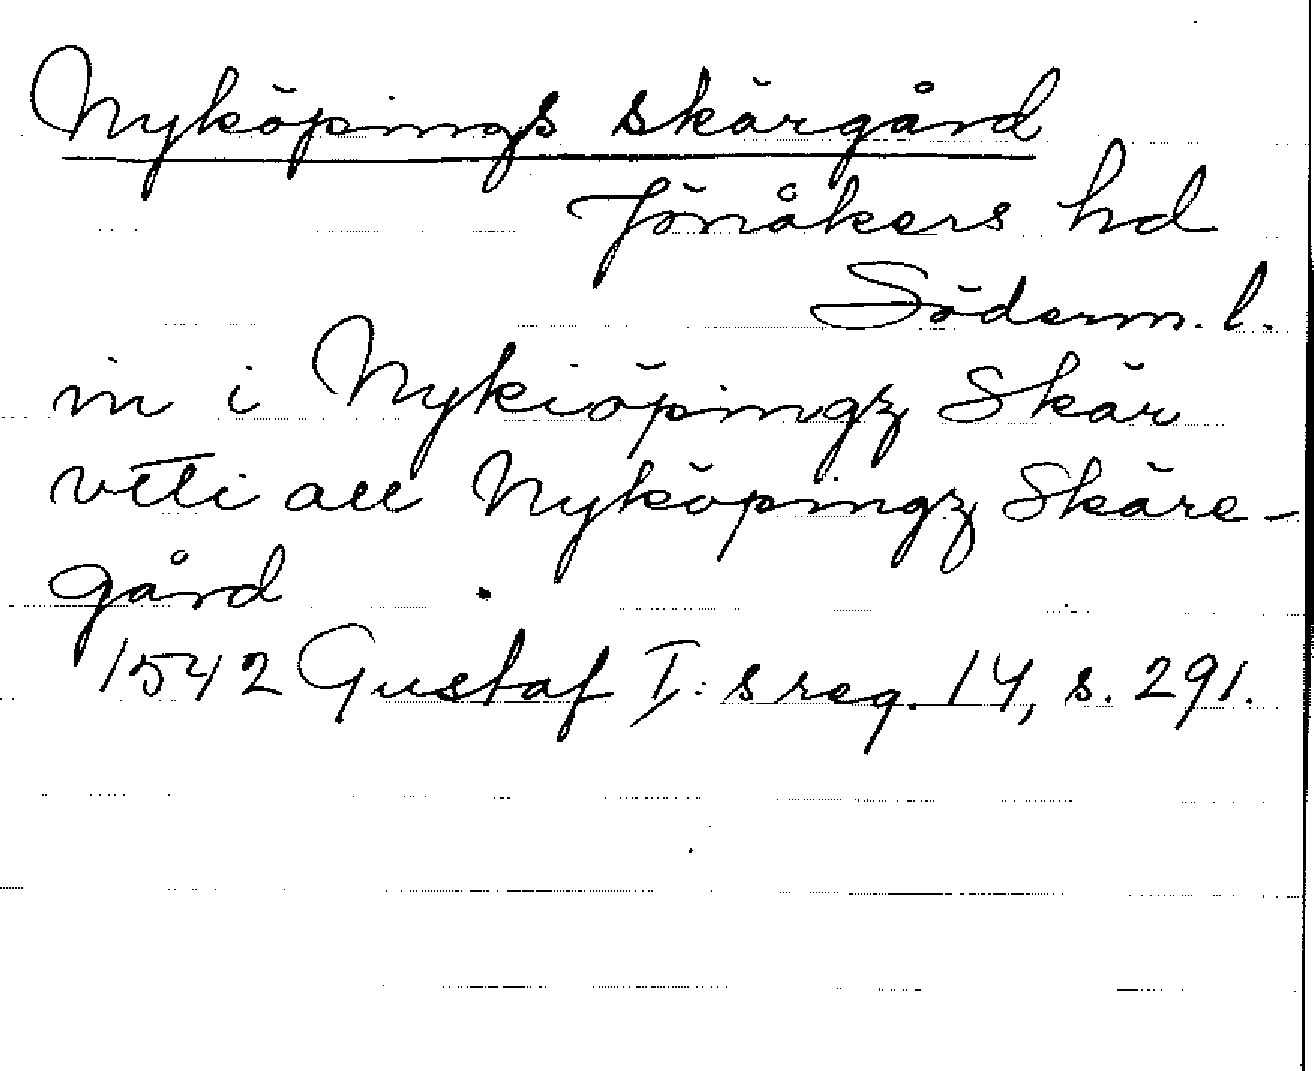 Nyköpings skärgård
Jönåkers hd
Söderm. l.
in i Nykiöpingz Skär
vtti all Nyköpingz Skäre-
gård
1542 Gustaf I:s reg. 14, s. 291.